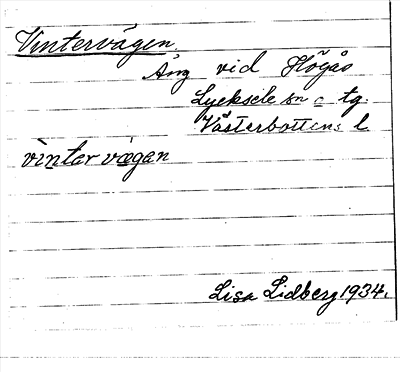 Vintervägen.
Äng vid Högås
Lycksele sn o tg.
Västerbottens l
vintervægan
Lisa Lidberg 1934.